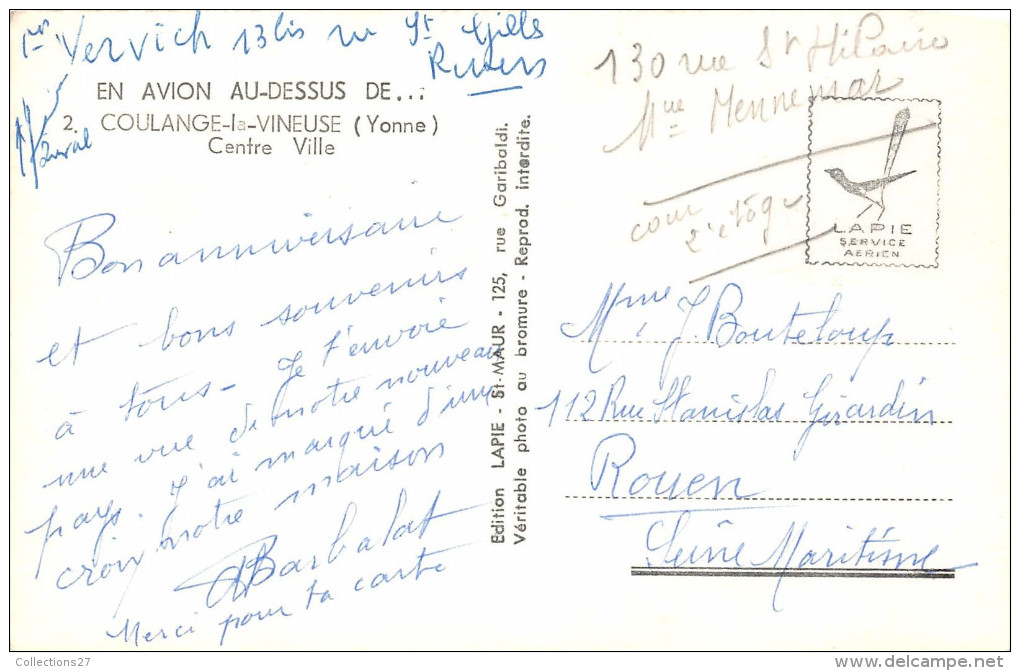 Vervich 13 bis rue St Gilles
Rouen
EN AVION AU-DESSUS DE...
2. COULANGE-la-VINEUSE (Yonne)
Centre Ville
Bon anniversaire
et bons souvenirs
à tous - Je t'envoie
une vue de notre nouveau
pays. J'ai marqué d'une
croix notre maison
Barbalat
Merci pour ta carte
Edition LAPIE - St-MAUR - 125, rue Garibaldi.
Véritable photo au bromure - Reprod. interdite.
130 rue St Hilaire
Mlle
cour
2e étage
LAPIE
SERVICE
AERIEN
Mme J. Bouteloup
112 Rue Stanislas Girardin
Rouen
Seine Maritime
Collections27